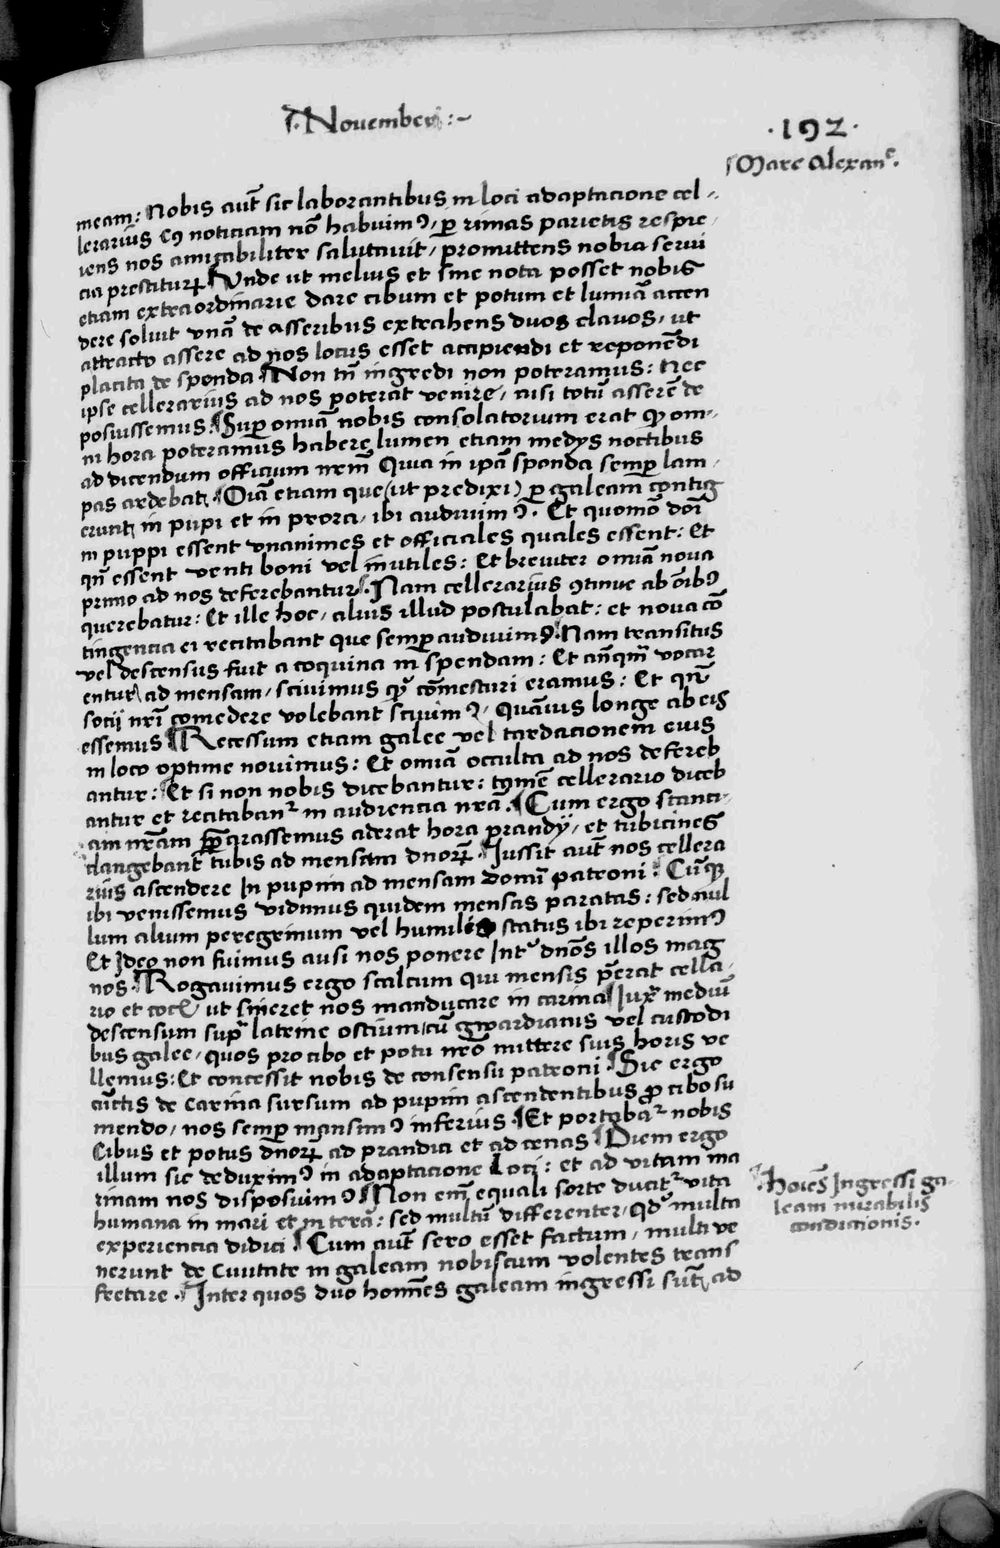 ·November:~
·192·
Mare Alexan͛.
meam: Nobis aut̄ sic laborantibus in loci adaptacione cel-
lerarius cꝰ noticiam nō habuimꝰ, ꝑ rimas parietis respic-
iens nos amicabiliter salutavit, promittens nobis servi
cia prestiturꝝ Unde ut melius et sine nota posset nobis
etiam extraordinarie dare cibum et potum et lumiā accen
dere soluit vnā de asseribus extrahens duos clavos, ut
attracto assere ad nos locus esset accipiendi et reponēdi
placita de sponda. Non tn̄ ingredi non poteramus: nec
ipse cellerarius ad nos poterat venire, nisi totū asserē de
posuissemus. Suꝑ omiā nobis consolatorium erat qꝫ om-
ni hora poteramus habere lumen etiam medys noctibus
ad dicendum officium nr̄m̄ Quia in ipā sponda semꝑ lam-
pas ardebat. Oīa etiam que (ut predixi) ꝑ galeam contig
erunt in pupi et in prora, ibi audivimꝰ. Et quomō dn̄i
in puppi essent vnanimes et officiales quales essent: Et
qn̄ essent venti boni vel inutiles: Et breviter omiā nova
primo ad nos deferebantur. Nam cellerarius ꝯtinue ab oībꝰ
querebatur: Et ille hoc, alius illud postulabat: et nova cō
tingencia ei recitabant que semꝑ audivimꝰ. Nam transitus
vel descensus fuit a coquina in spendam: Et an̄qm̄ vocar
entur ad mensam, scivimus qꝫ cōmesturi eramus: Et qn̄
socij nr̄i comedere volebant scivimꝰ, quāuis longe ab eis
essemus Recessum etiam galee vel tardacionem eius
in loco optime novimus: Et omiā occulta ad nos defereb
antur: Et si non nobis dicebantur: tn̄ cellerario diceb
antur et recitaban͛ in audiencia nr̄a. Cum ergo stanci-
am nr̄am p̄parassemus aderat hora prandÿ, et tubicines
clangebant tubis ad mensam dnorꝝ. Jussit aut̄ nos cellera
rius ascendere in pupim ad mensam domī patroni. Cūqꝫ
ibi venissemus vidimus quidem mensas paratas: sed nul
lum alium peregrinum vel humilis status ibi reperimꝰ
Et ideo non fuimus ausi nos ponere Int͛ dnōs illos mag
nos. Rogavimus ergo scalcum qui mensis p̄erat cella-
rio et coco ut sineret nos manducare in carina Iux͛ mediū
descensum supͣ latrine ostium, cū gwardianis vel custodi
bus galee, quos pro cibo et potu nr̄o mittere suis horis ve
llemus: Et concessit nobis de consensu patroni. Sic ergo
cūctis de carina sursum ad pupim ascendentibus ꝓ cibo su
mendo, nos semꝑ mansimꝰ inferius. Et portaba͛ nobis
cibus et potus dn̄orꝝ ad prandia et ad cenas Diem ergo
illum sic deduximꝰ in adaptacione loci: et ad vitam ma
rinam nos disposuimꝰ. Non em̄ equali sorte ducit͛ vita
humana in mari et in terā: sed multū differenter, qd̄ multa
experiencia didici. Cum aut̄ sero esset factum, multi ve
nerunt de civitate in galeam nobiscum volentes trans
fretare. Inter quos duo homīes galeam ingressi sūt, ad
Hoīes Ingressi ga-
leam mirabilis
condicionis.